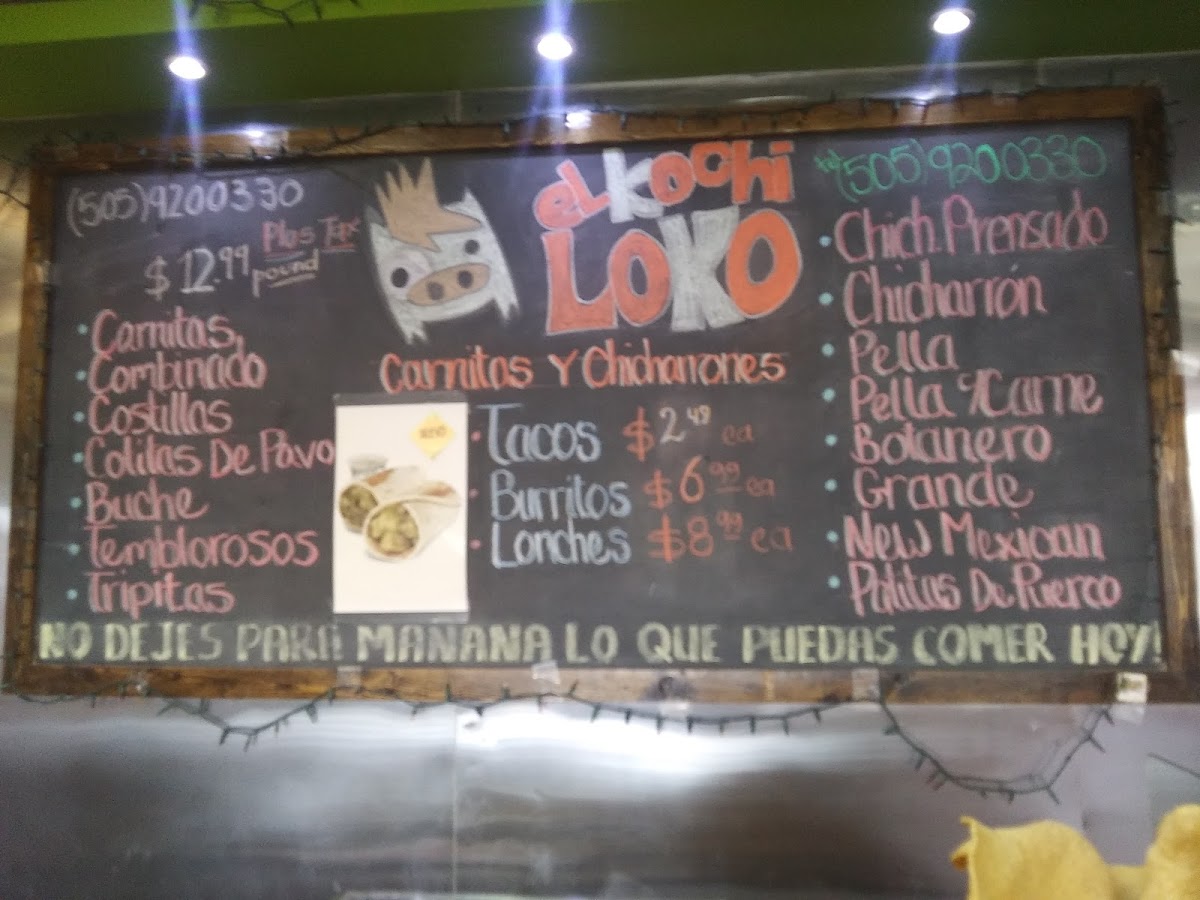 (505)9200330
$12.99 Plas Tax
pound
• Carnitas,
• Combinado
• Costillas
• Colitas De Pavo
• Buche
• Temblorosos
• Tripitas
el Kochi
Loko
Carnitas Y Chicharrones
• Tacos $2.49 ea
• Burritos $6.99 ea
• Lonches $8.99 ea
(505)9200330
• Chich. Prensado
• Chicharrón
• Pella
• Pella c/Carne
• Botanero
• Grande
• New Mexican
• Patitas De Puerco
NO DEJES PARA MAÑANA LO QUE PUEDAS COMER HOY!